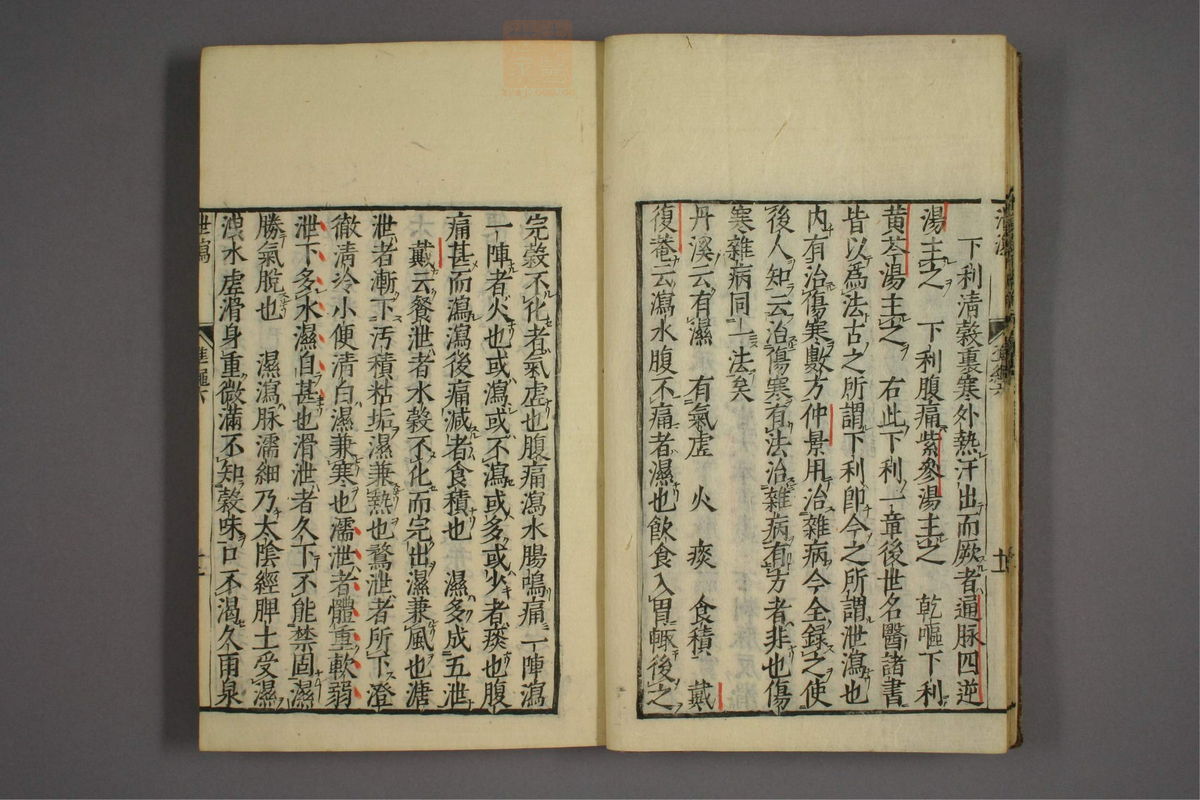 下利清穀裏寒外熱汗出而厥者通脉四逆
湯主之　下利腹痛紫參湯主之　乾嘔下利
黃芩湯主之　右此下利一章後世名醫諸書
皆以爲法古之所謂下利卽今之所謂泄瀉也
内有治傷寒數方仲景用治雜病今全録之使
後人知云治傷寒有法治雜病有方者非也傷
寒雜病同一法矣
丹溪云有濕　有氣虛　火　痰　食積　戴
復菴云瀉水腹不痛者濕也飮食入胃輙後之
完穀不化者氣虛也腹痛瀉水腸鳴痛一陣瀉
一陣者火也或瀉或不瀉或多或少者痰也腹
痛甚而瀉瀉後痛減者食積也　濕多成五泄
戴云餐泄者水穀不化而完出濕兼風也溏
泄者漸下汚積粘垢濕兼熱也鶩泄者所下澄
徹清冷小便清白濕兼寒也濡泄者體重軟弱
泄下多水濕自甚也滑泄者久下不能禁固濕
勝氣脱也　濕瀉脉濡細乃太陰經脾土受濕
洩水虛滑身重微滿不知穀味口不渴久雨泉
泄瀉
十一